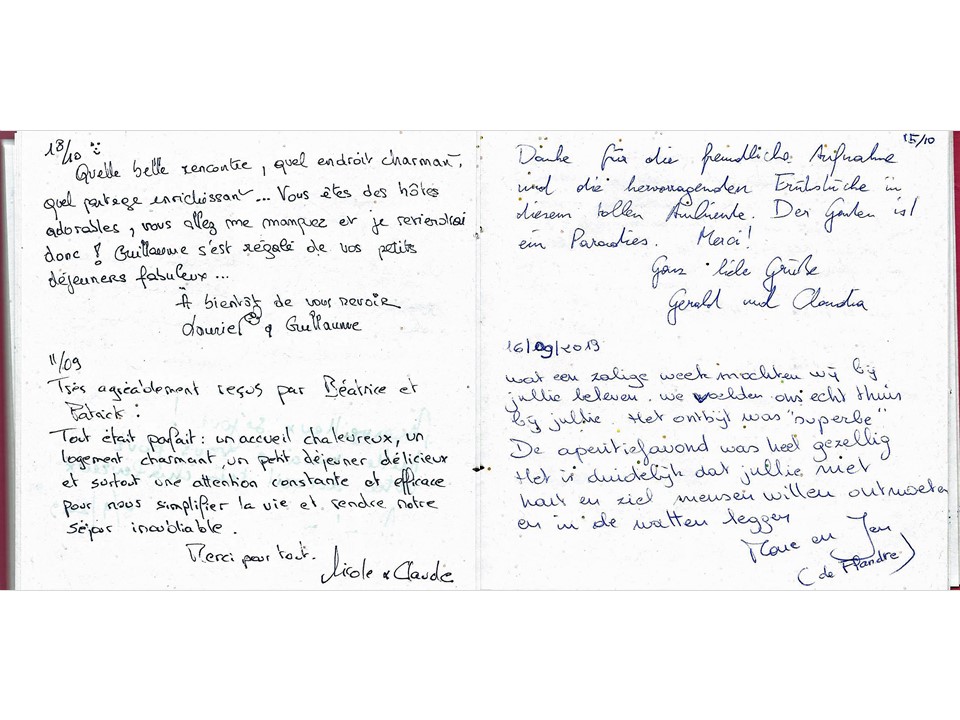 18/10
Quelle belle rencontre, quel endroit charmant,
quel partage enrichissant... Vous êtes des hôtes
adorables, vous allez me manquez et je reviendrai
donc ! Guillaume s'est régalé de vos petits
déjeuners fabuleux...
A bientôt de vous revoir
& Guillaume
11/09
Très agréablement reçus par Béatrice et
Patrick :
Tout était parfait : un accueil chaleureux, un
logement charmant, un petit déjeuner délicieux
et surtout une attention constante et efficace
pour nous simplifier la vie et rendre notre
séjour inoubliable.
Merci pour tout.
Nicole & Claude
15/10
Danke für die freundliche Aufnahme
und die hervorragenden Frühstücke in
diesem tollen Ambiente. Der Garten ist
ein Paradies. Merci!
Ganz liebe Grüße
Gerald und Claudia
16/09/2019
wat een zalige week mochten wij bij
jullie beleven. we voelden ons echt thuis
bij jullie. Het ontbijt was "superbe"
De aperitiefavond was heel gezellig
Het is duidelijk dat jullie met
hart en ziel mensen willen ontmoeten
en in de watten leggen
en Jan
(de Flandre)